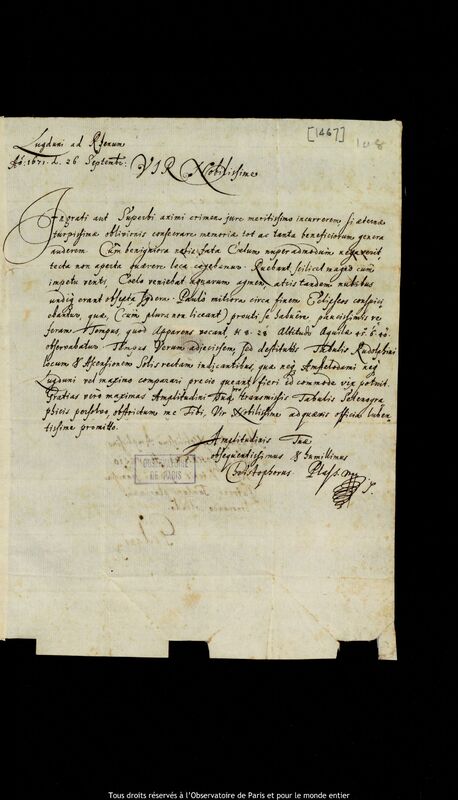 [1467]
108
Lugduni ad Rhenum
Aº: 1671. d. 26 Septembr:
VIR Nobilissime
Ingrati aut Superbi animi crimen jure meritissimo incurrerem, si æterna
turpissimæ oblivionis conservare memoria tot ac tanta beneficiorum genera
auderem. Cum benigniora nobis fata Cælum nuper admodum negaverit
tecta non aperta quærere loca cogebamur. Ruebant scilicet magno cum
impetu venti, Cœlo veniebat aquarum agmen, atris tandem nubibus
undiq erant obsepta Sydera. Paulo mitiora circa finem Eclipseos conspici
ebantur, quæ, (cum plura non liceant) prouti se habuere, paucissimis re
feram. Tempus, quod Apparens vocant, H 8. 28 Altitudo Aquilæ 45. 6. 40.
observabatur. Tempus Verum adjecissem, sed destitutus Tabulis Rudolphinis
locum & Ascensionem Solis rectam indicantibus, quæ neq Amstelodami neq
Lugduni vel maximo comparari precio queant, fieri id commode vix potuit.
Gratias vero maximas Amplitudini Tuæ transmissis Tabulis Selenogra
phicis persolvo, obstrictum me Tibi, Vir Nobilissime ad quævis officia luben
tissime promitto.
Amplitudinis Tuæ
obsequentissimus & humillimus
Christophorus
OBSERVATOIRE
DE PARIS
Tous droits réservés à l'Observatoire de Paris et pour le monde entier